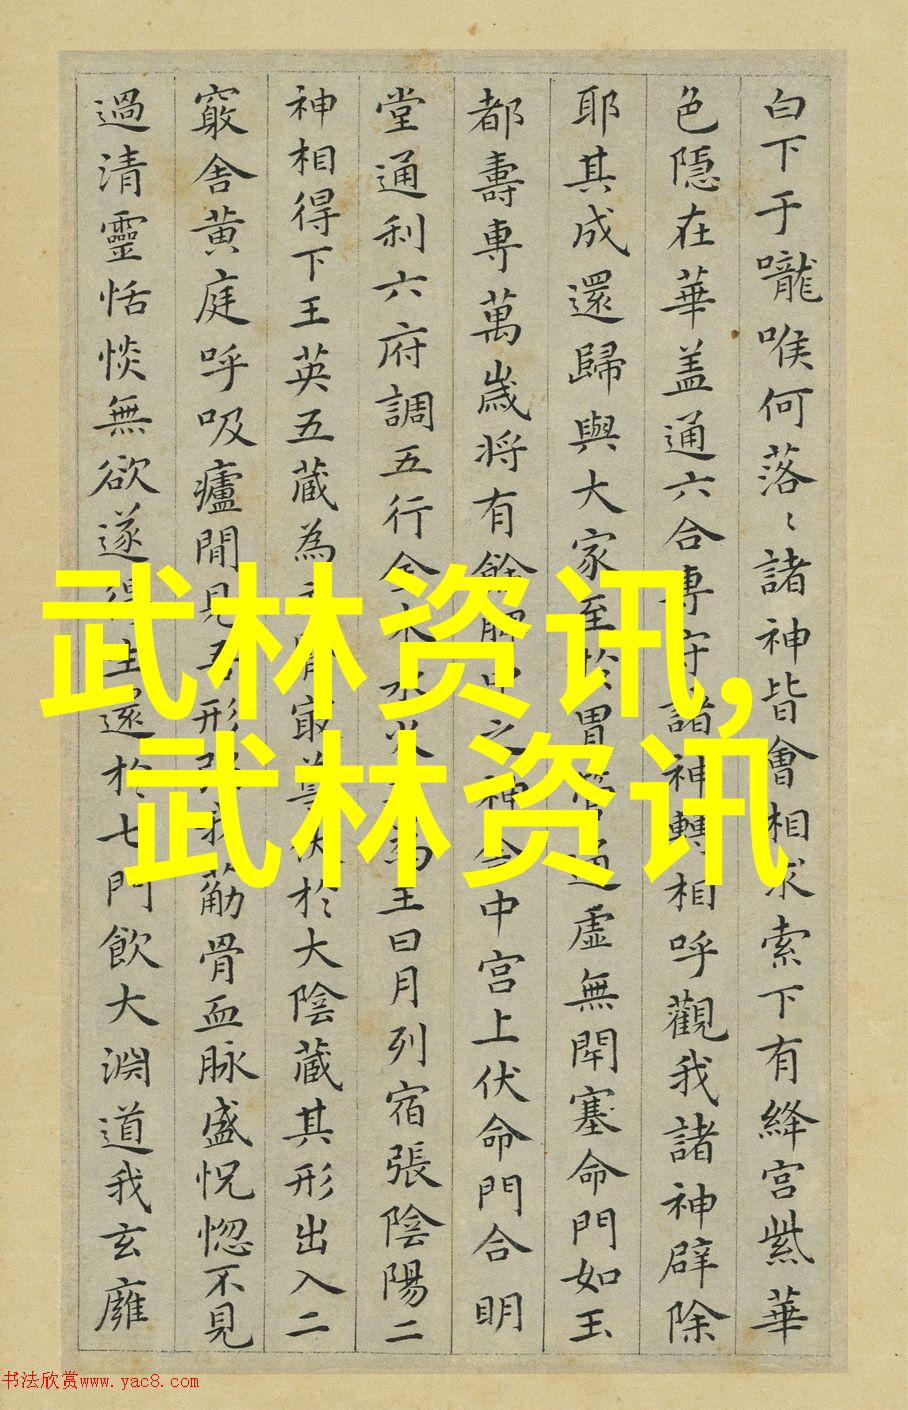 白下于嚨喉何落〻諸神皆會相求索下有絳宫紫華
色隱在華盖通六合專守諸神轉相呼觀我諸神辟除
耶其成還歸與大家至於胃管通虛無閇塞命門如玉
都壽專萬歲將有餘脾中之神舍中宫上伏命門合明
堂通利六府調五行金木水火土為王日月列宿張陰陽二
神相得下王英五藏為主腎㝡尊伏於大陰藏其形出入二
竅舍黄庭呼吸廬閒見吾形强我筋骨血脉盛怳惚不見
過清靈恬惔無欲遂得生還於七門飲大淵道我玄廱
武林资讯,
武林资讯
书法欣赏www.yac8.com